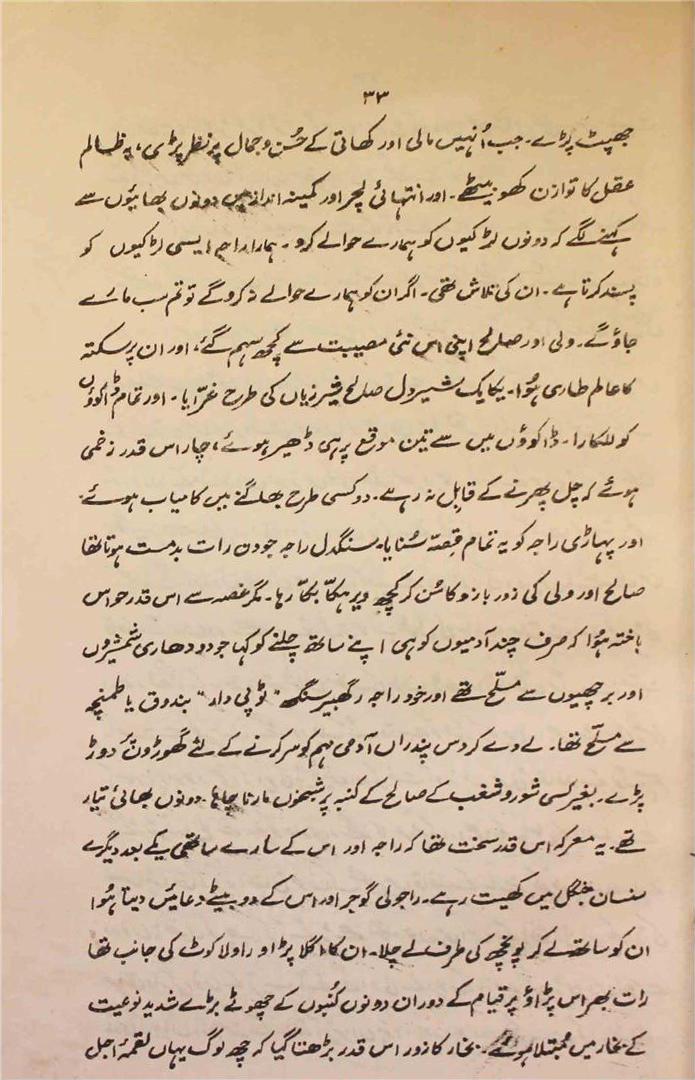 ۳۳
جھپٹ پڑے۔ جب اُنہیں مالی اور کھاتی کے حُسن و جمال پر نظر پڑی، یہ ظالم
عقل کا توازن کھو بیٹھے۔ اور انتہائی لچر اور کمینہ انداز میں دونوں بھائیوں سے
کہنے لگے کہ دونوں لڑکیوں کو ہمارے حوالے کرو۔ ہمارا راجہ ایسی لڑکیوں کو
پسند کرتا ہے۔ ان کی تلاش تھی۔ اگر ان کو ہمارے حوالے نہ کرو گے تو تم سب مارے
جاؤ گے۔ ولی اور صالح اپنی اس نئی مصیبت سے کچھ سہم گئے، اور ان پر سکتہ
کا عالم طاری ہُوا۔ یکایک شیر دل صالح شیرِ زیاں کی طرح غرّایا۔ اور تمام ڈاکوؤں
کو للکارا۔ ڈاکوؤں میں سے تین موقع پر ہی ڈھیر ہوئے، چار اس قدر زخمی
ہوئے کہ چل پھرنے کے قابل نہ رہے۔ دو کسی طرح بھاگنے میں کامیاب ہوئے۔
اور پہاڑی راجہ کو یہ تمام قِصّہ سُنایا۔ سنگدل راجہ جو دن رات بدمست ہوتا تھا
صالح اور ولی کی زور بازو کا سُن کر کچھ دیر ہکّا بکّا رہا۔ مگر غصہ سے اس قدر حواس
باختہ ہُوا کہ صرف چند آدمیوں کو ہی اپنے ساتھ چلنے کو کہا جو دو دھاری شمشیروں
اور برچھیوں سے مسلّح تھے اور خود راجہ رگھبیر سنگھ "ٹوپی دار" بندوق یا طمنچہ
سے مسلّح تھا۔ لے دے کر دس پندراں آدمی مہم کو سر کرنے کے لئے گھوڑوں پر دوڑ
پڑے۔ بغیر کسی شور و شغب کے صالح کے کنبہ پر شبخوں مارنا چاہا۔ دونوں بھائی تیار
تھے۔ یہ معرکہ اس قدر سخت تھا کہ راجہ اور اس کے سارے ساتھی یکے بعد دیگرے
سنسان جنگل میں کھیت رہے۔ راجولی گوجر اور اس کے دو بیٹے دعائیں دیتا ہُوا
ان کو ساتھ لے کر پونچھ کی طرف لے چلا۔ ان کا اگلا پڑاو راولا کوٹ کی جانب تھا
رات بھر اس پڑاؤ پر قیام کے دوران دونوں کنبوں کے چھوٹے بڑے شدید نوعیت
کے بخار میں مبتلا ہوئے۔ بخار کا زور اس قدر بڑھتا گیا کہ چھ لوگ یہاں لقمۂ اجل